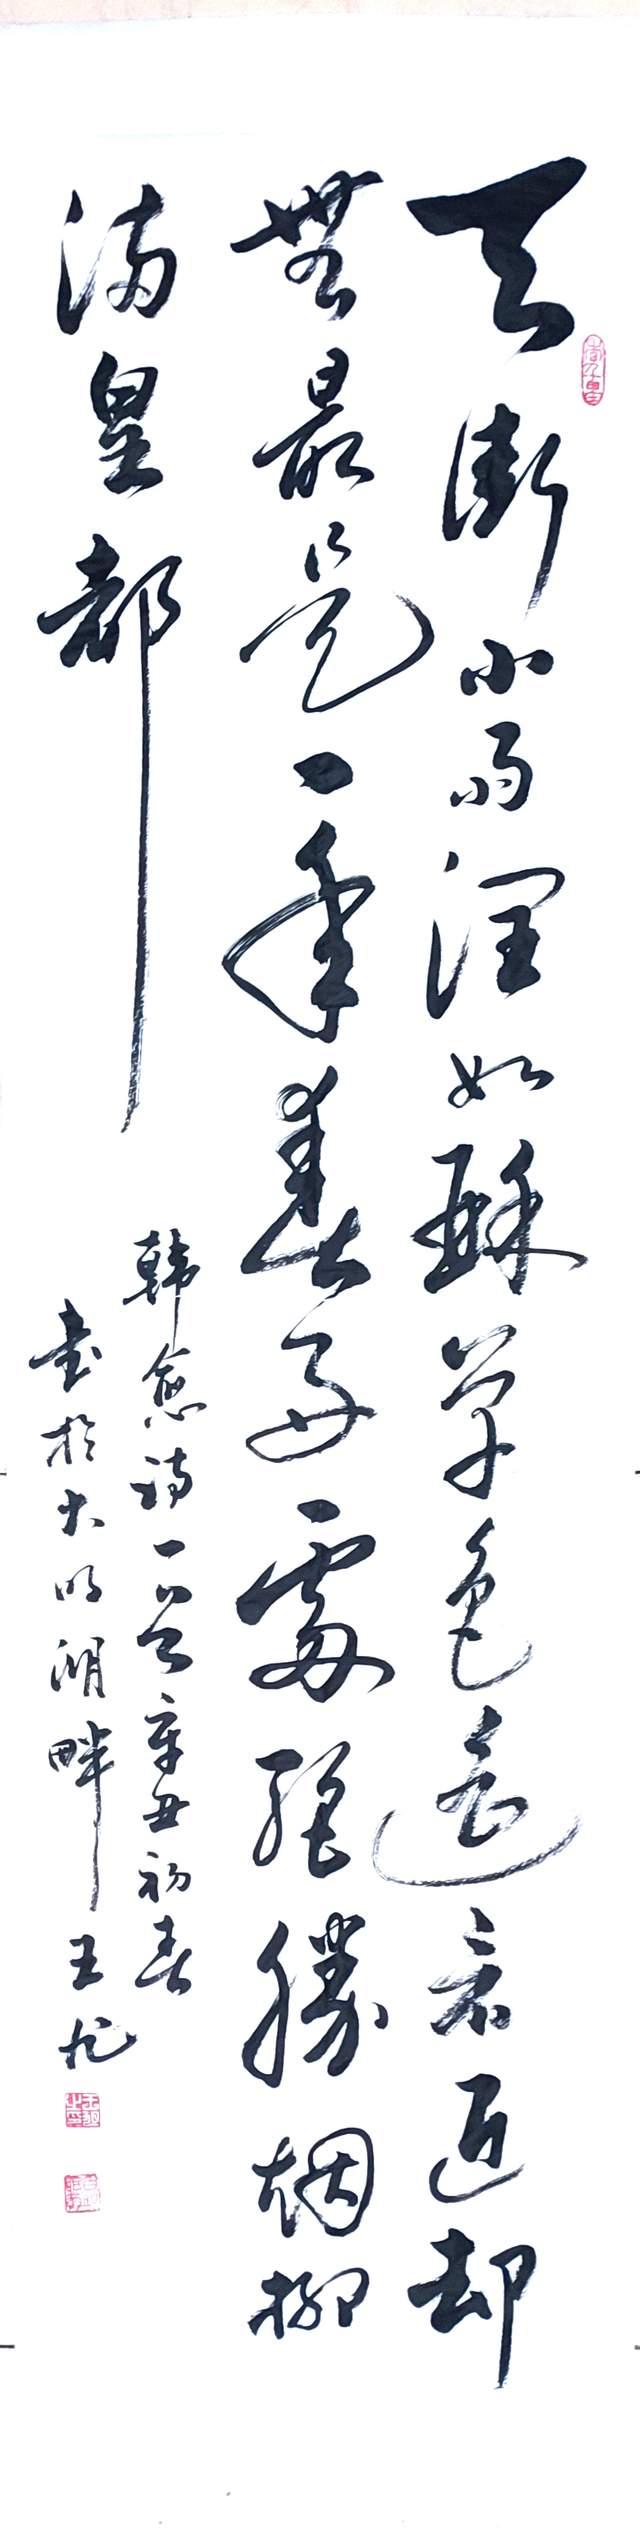 天街小雨润如酥草色遥看近却
無最是一年春好處绝勝烟柳
满皇都
韩愈诗一首辛丑初春
书於大明湖畔王